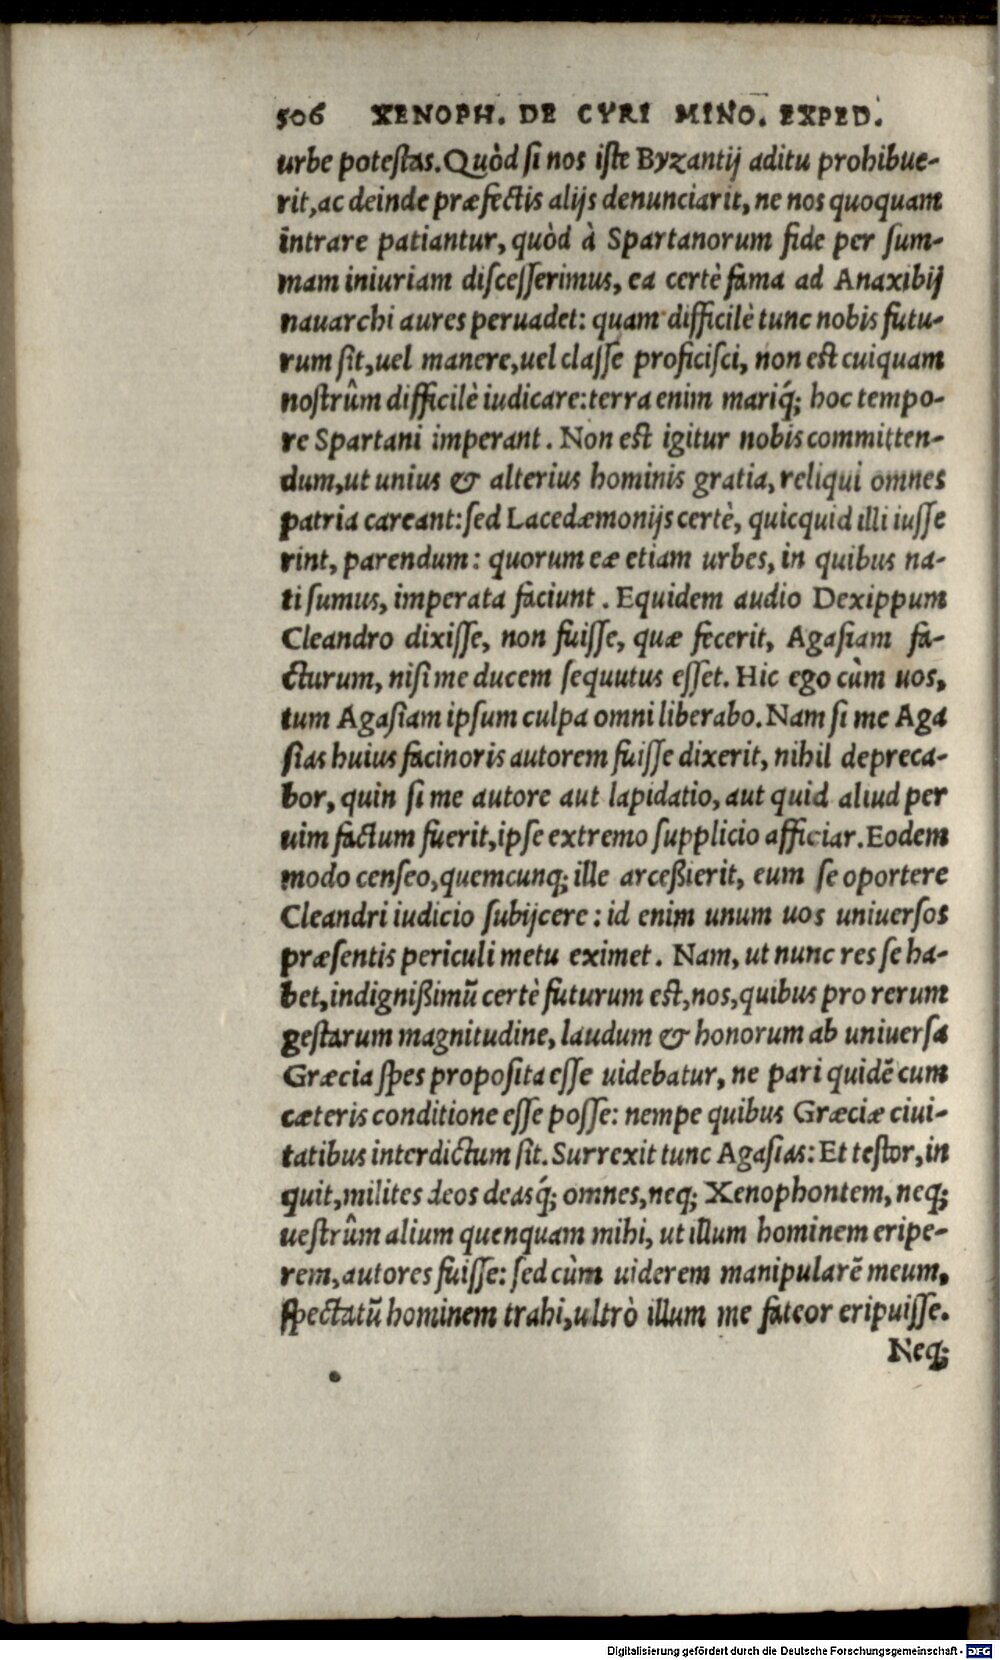 506 XENOPH. DE CYRI MINO. EXPED.
urbe potestas. Quòd si nos iste Byzantij aditu prohibue-
rit, ac deinde præfectis alijs denunciarit, ne nos quoquam
intrare patiantur, quòd à Spartanorum fide per sum-
mam iniuriam discesserimus, ea certè fama ad Anaxibij
nauarchi aures peruadet: quam difficilè tunc nobis futu-
rum sit, uel manere, uel classe proficisci, non est cuiquam
nostrûm difficilè iudicare: terra enim mariq́; hoc tempo-
re Spartani imperant. Non est igitur nobis committen-
dum, ut unius & alterius hominis gratia, reliqui omnes
patria careant: sed Lacedæmonijs certè, quicquid illi iusse
rint, parendum: quorum eæ etiam urbes, in quibus na-
ti sumus, imperata faciunt. Equidem audio Dexippum
Cleandro dixisse, non fuisse, quæ fecerit, Agasiam fa-
cturum, nisi me ducem sequutus esset. Hic ego cùm uos,
tum Agasiam ipsum culpa omni liberabo. Nam si me Aga
sias huius facinoris autorem fuisse dixerit, nihil depreca-
bor, quin si me autore aut lapidatio, aut quid aliud per
uim factum fuerit, ipse extremo supplicio afficiar. Eodem
modo censeo, quemcunq; ille arceßierit, eum se oportere
Cleandri iudicio subijcere: id enim unum uos uniuersos
præsentis periculi metu eximet. Nam, ut nunc res se ha-
bet, indignißimū certè futurum est, nos, quibus pro rerum
gestarum magnitudine, laudum & honorum ab uniuersa
Græcia spes proposita esse uidebatur, ne pari quidē cum
cæteris conditione esse posse: nempe quibus Græciæ ciui-
tatibus interdictum sit. Surrexit tunc Agasias: Et testor, in
quit, milites deos deasq́; omnes, neq; Xenophontem, neq;
uestrûm alium quenquam mihi, ut illum hominem eripe-
rem, autores fuisse: sed cùm uiderem manipularē meum,
spectatū hominem trahi, ultrò illum me fateor eripuisse.
Neq;
Digitalisierung gefördert durch die Deutsche Forschungsgemeinschaft - DFG